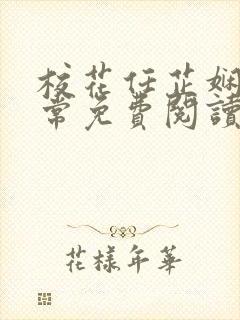 校花任芷娴
常免费阅读
花样年华